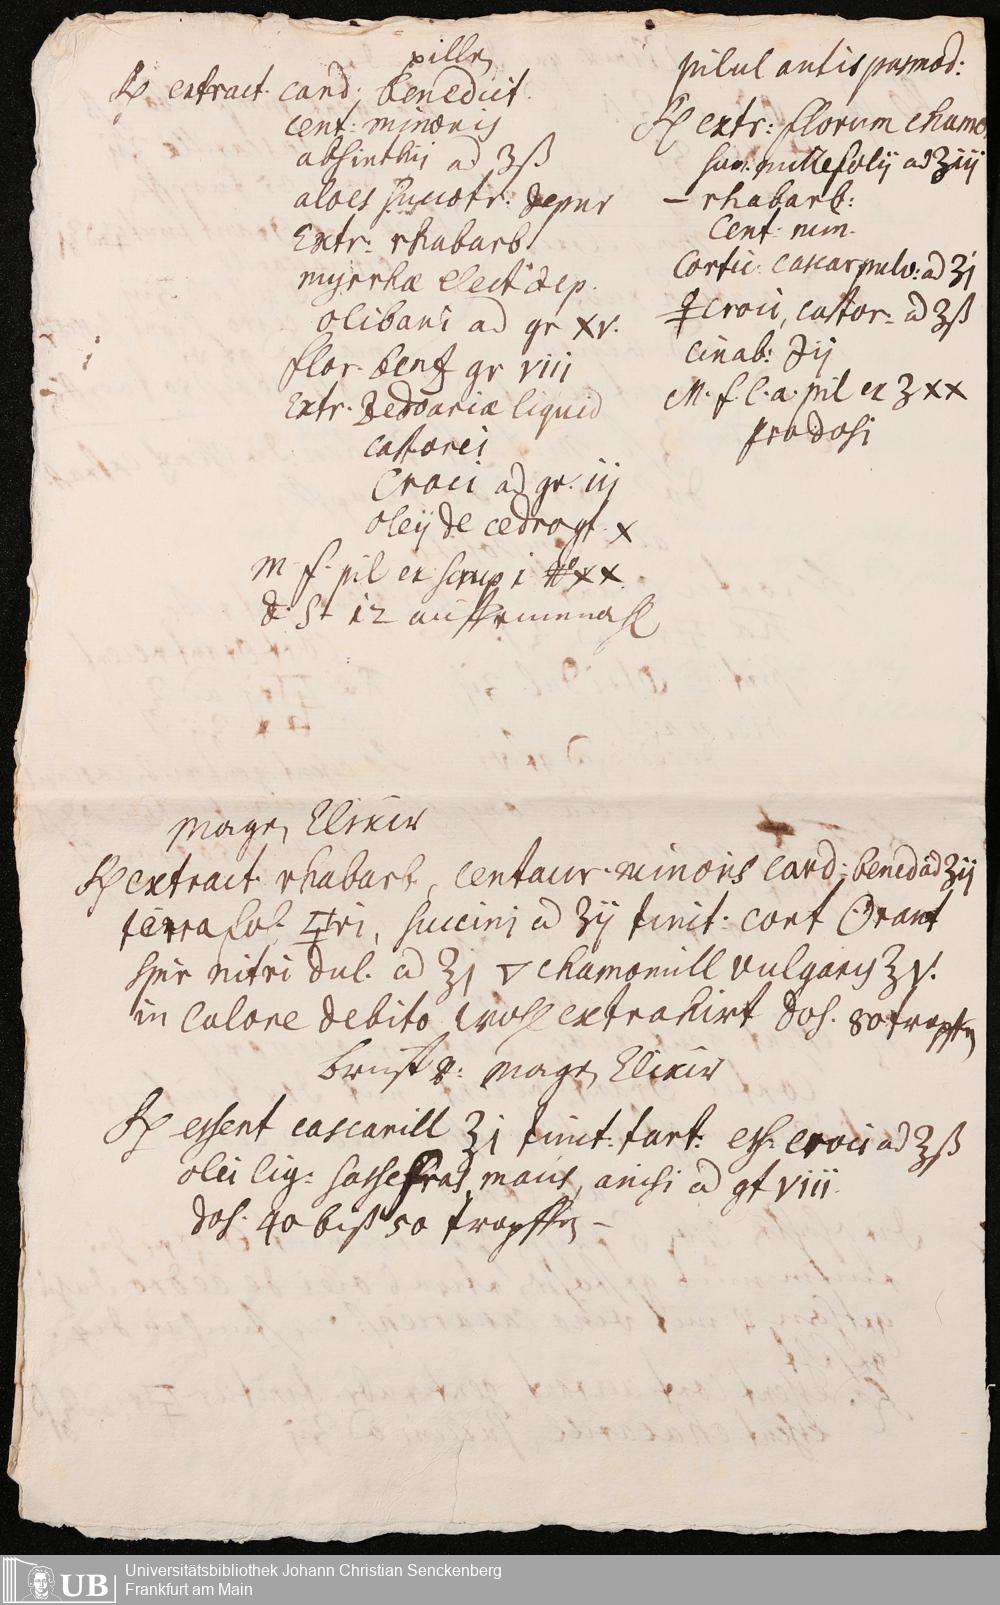 pillen
℞ extract. card: benedict.
cent: minoris
absinthij ad ʒß
aloes succotr: depur
Extr: rhabarb
myrrhæ elect dep.
olibani ad gr xv.
flor. benz gr viii
Extr. Zedoariæ liquid
castorei
Croci ad gr. iij
oleij de cedro gt. x
M f. pil ex scrup i No xx
d. St 12 auff einmahl
pilul antispasmod:
℞ extr: florum chamo
sum. millefolij ad ʒiij
– rhabarb:
Cent. min.
Cortic. cascar pulv: ad ʒj
croci, castor: ad ʒß
cinab: ℈ij
M. f. l. a. pil ex ʒ xx
pro dosi
Magen Elixir
℞ extract. rhabarb, centaur. minoris Card: bened ad ʒij
terra fol. ri, succini ad ʒij tinct. cort Orant
spir nitri dul. ad ʒj ▽ chamomill vulgaris ʒ v.
in calore debito wohl extrahirt dos. 80 tropffen
brust &: magen Elixir
℞ essent cascarill ʒj tinct: tart: ess: croci ad ʒß
olei lig: sassefras, macis, anisi ad gt viii.
dos. 40 biß 50 tropffen –
UB
Universitätsbibliothek Johann Christian Senckenberg
Frankfurt am Main